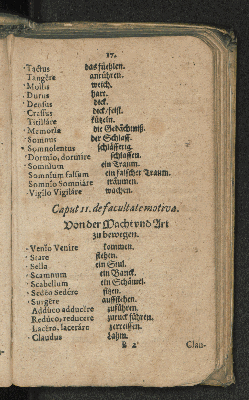 17.
Tactus das füehlen.
Tangĕre anrühren.
Mollis weich.
Durus hart.
Densus dick.
Crassus dick/feist.
Titilläre kützeln.
Memoria die Gedächtniß.
Somnus der Schlaff.
Somnolentus schläfferig.
Dormio, dormire schlaffen.
Somnium ein Traum.
Somnium falsum ein falscher Traum.
Somnio Somniäre träumen.
Vigilo Vigiläre wachen.
Caput 11. de facultate motiva.
Von der Macht vnd Art
zu bewegen.
Venio Venire kommen.
Stare stehen.
Sella ein Stul.
Scamnum ein Banck.
Scabellum ein Schämel.
Sedeo Sedēre sitzen.
Surgĕre auffstehen.
Adduco adducĕre zuführen.
Reduco, reducere zuruck führen.
Lacĕro, laceräre zerreissen.
Claudus Lahm.
2 Clau-